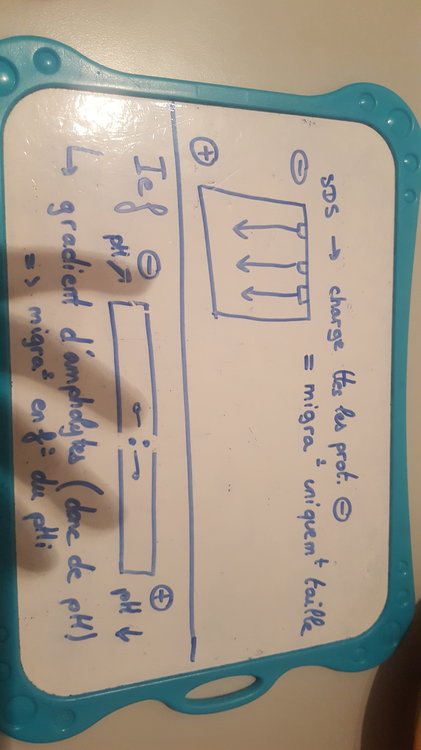 SDS → charge ttes les prot. ⊖
= migra° uniquemt taille
⊖
⊕
Ief ⊖ ⊕
pH ↗ pH ↓
↳ gradient d'ampholytes (donc de pH)
=> migra° en f° du pHi